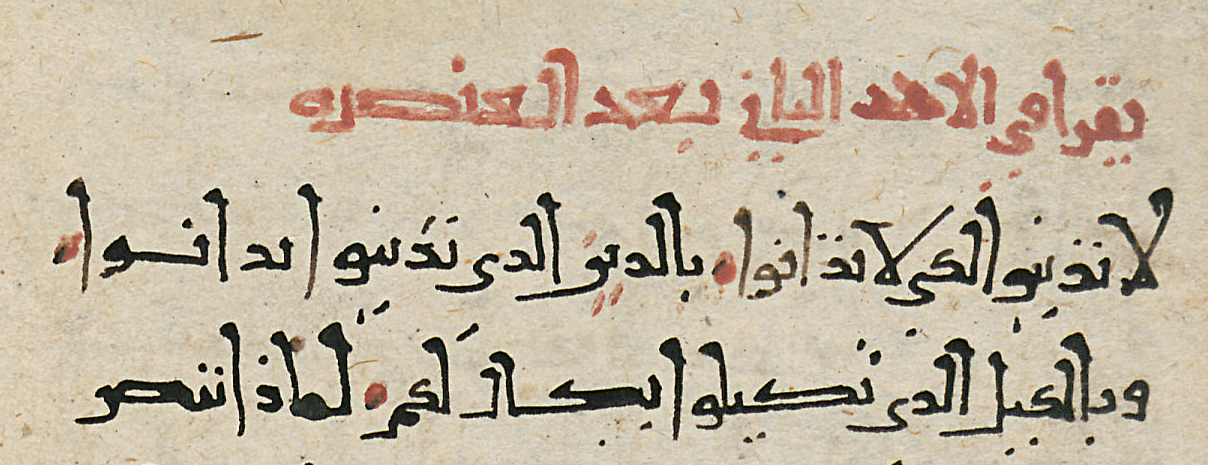 يقرا في الاحد الثاني بعد العنصره
لا تدينوا لكي لا تدانوا بالدين الدي تدينوا تدانوا
وبالكيل الدي تكيلوا يكال لكم لماذا تنصر